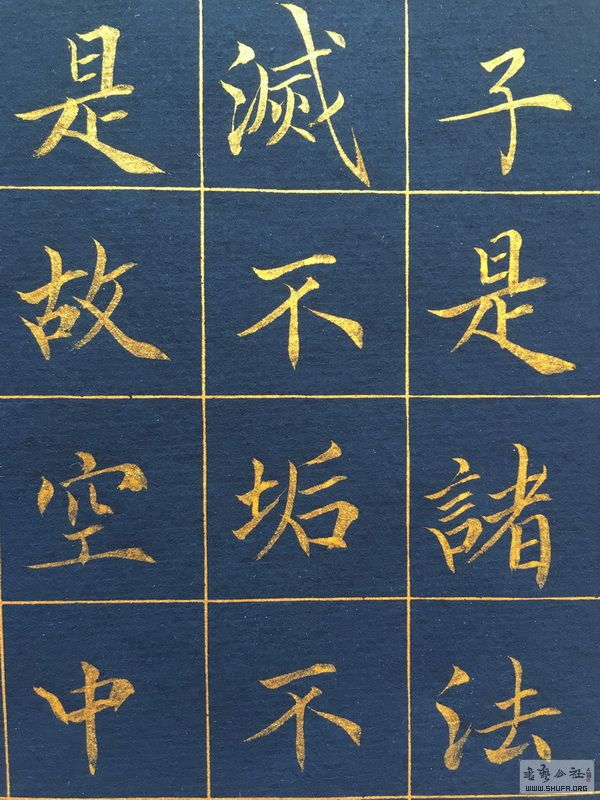 子是諸法
滅不垢不
是故空中
書艺公社
WWW.SHUFA.ORG